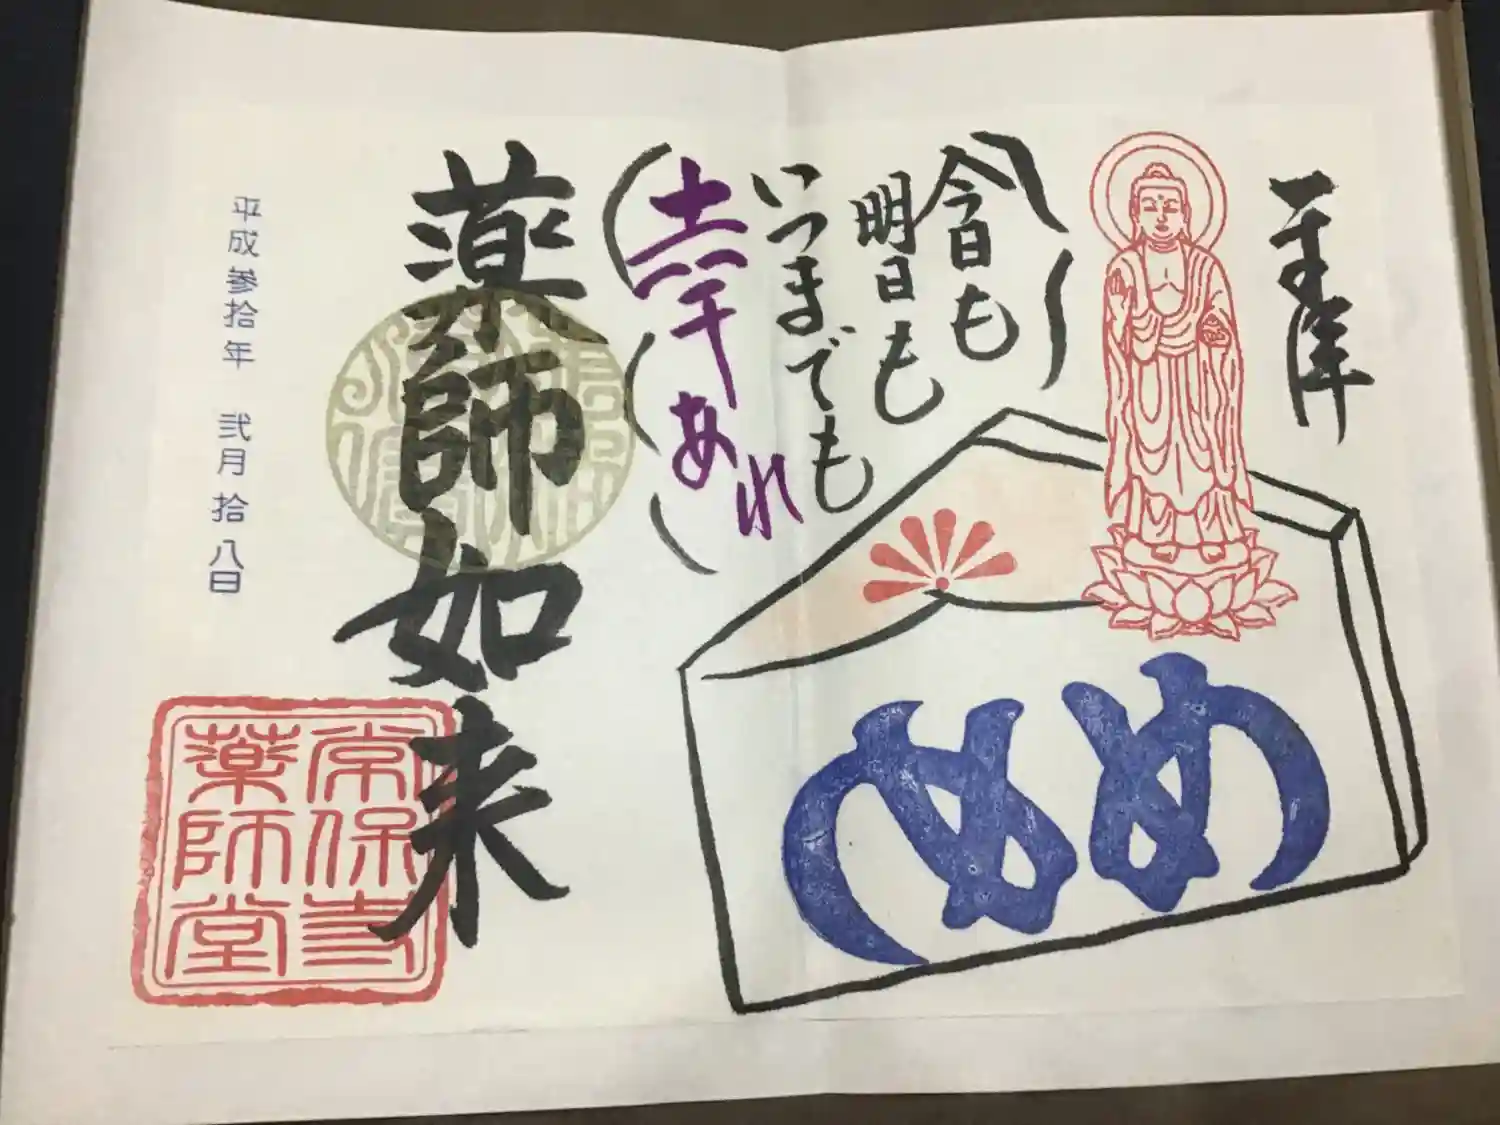 奉拝
今日も
明日も
いつまでも
幸あれ
めめ
薬師如来
常保寺
薬師堂
平成参拾年 弐月 拾八日